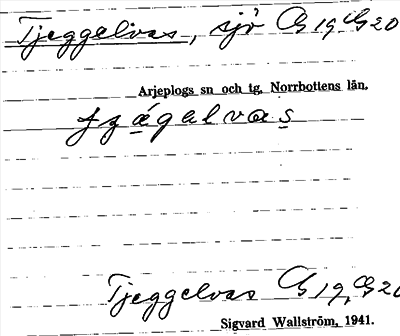 Tjeggelvas, sjö G 19, G 20
Arjeplogs sn och tg, Norrbottens län.
Tjeggelvas G 19, G 20
Sigvard Wallström, 1941.